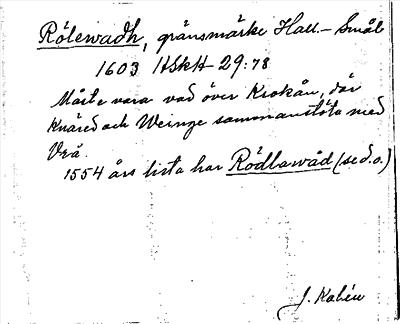 Rölewadh, gränsmärke Hall.- Smål
1603 HSkH 29:78
Måste vara vad över Krokån, där
Knäred och Weinge sammanstöta med
Vrå.
1554 års lista har Rödlawåd (se d.o.)
J. Kalén